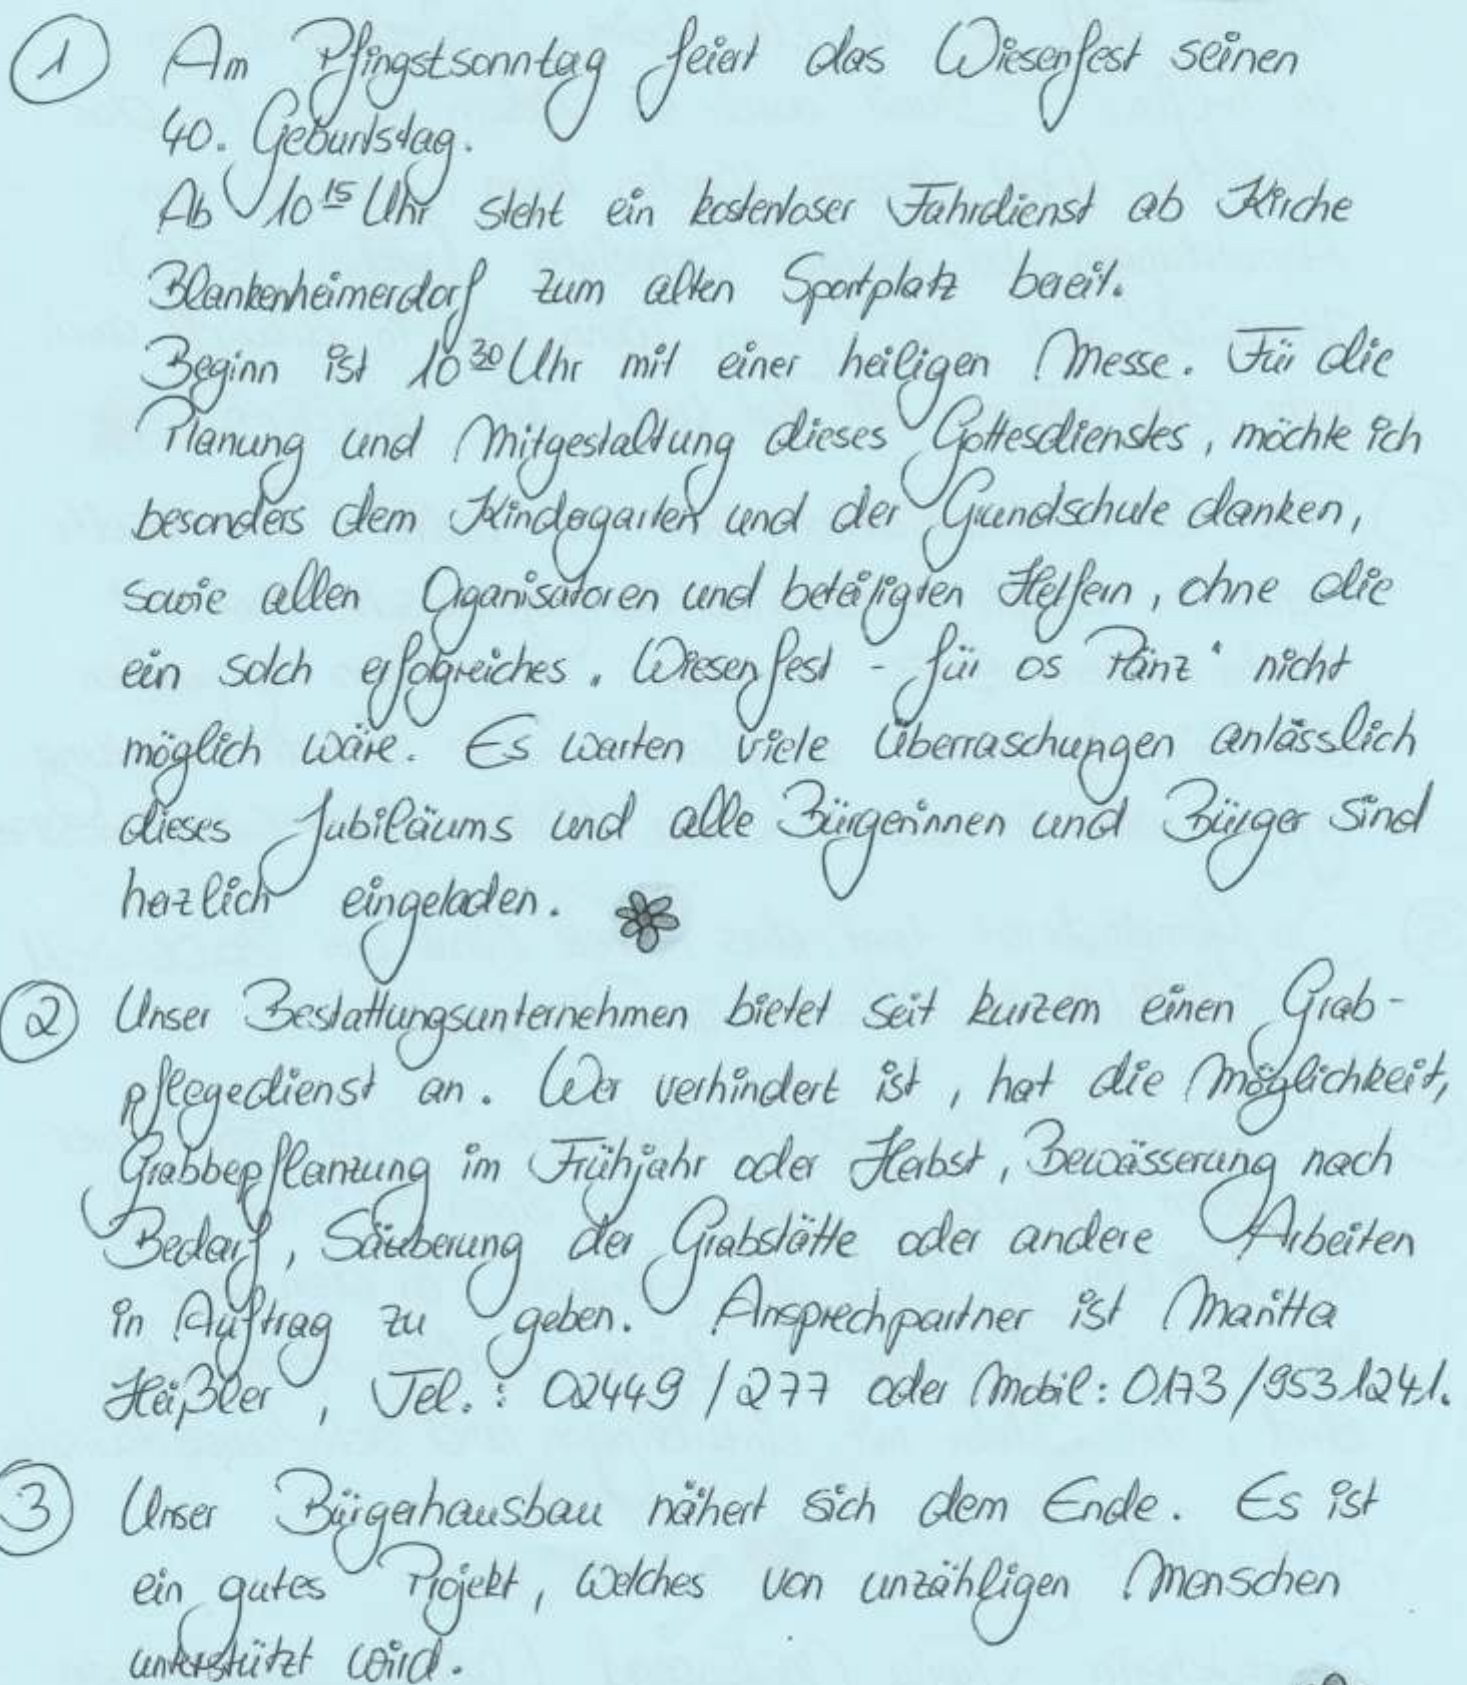 1 Am Pfingstsonntag feiert das Wiesenfest seinen
40. Geburtstag.
Ab 10 15 Uhr steht ein kostenloser Fahrdienst ab Kirche
Blankenheimerdorf zum alten Sportplatz bereit.
Beginn ist 10 30 Uhr mit einer heiligen Messe. Für die
Planung und Mitgestaltung dieses Gottesdienstes, möchte ich
besonders dem Kindergarten und der Grundschule danken,
sowie allen Organisatoren und beteiligten Helfern, ohne die
ein solch erfolgreiches „Wiesenfest - für os Pänz“ nicht
möglich wäre. Es warten viele Überraschungen anlässlich
dieses Jubiläums und alle Bürgerinnen und Bürger sind
herzlich eingeladen.
2 Unser Bestattungsunternehmen bietet seit kurzem einen Grab-
pflegedienst an. Wer verhindert ist, hat die Möglichkeit,
Grabbepflanzung im Frühjahr oder Herbst, Bewässerung nach
Bedarf, Säuberung der Grabstätte oder andere Arbeiten
in Auftrag zu geben. Ansprechpartner ist Maritta
Heißler, Tel.: 02449/277 oder Mobil: 0173/9531241.
3 Unser Bürgerhausbau nähert sich dem Ende. Es ist
ein gutes Projekt, welches von unzähligen Menschen
unterstützt wird.